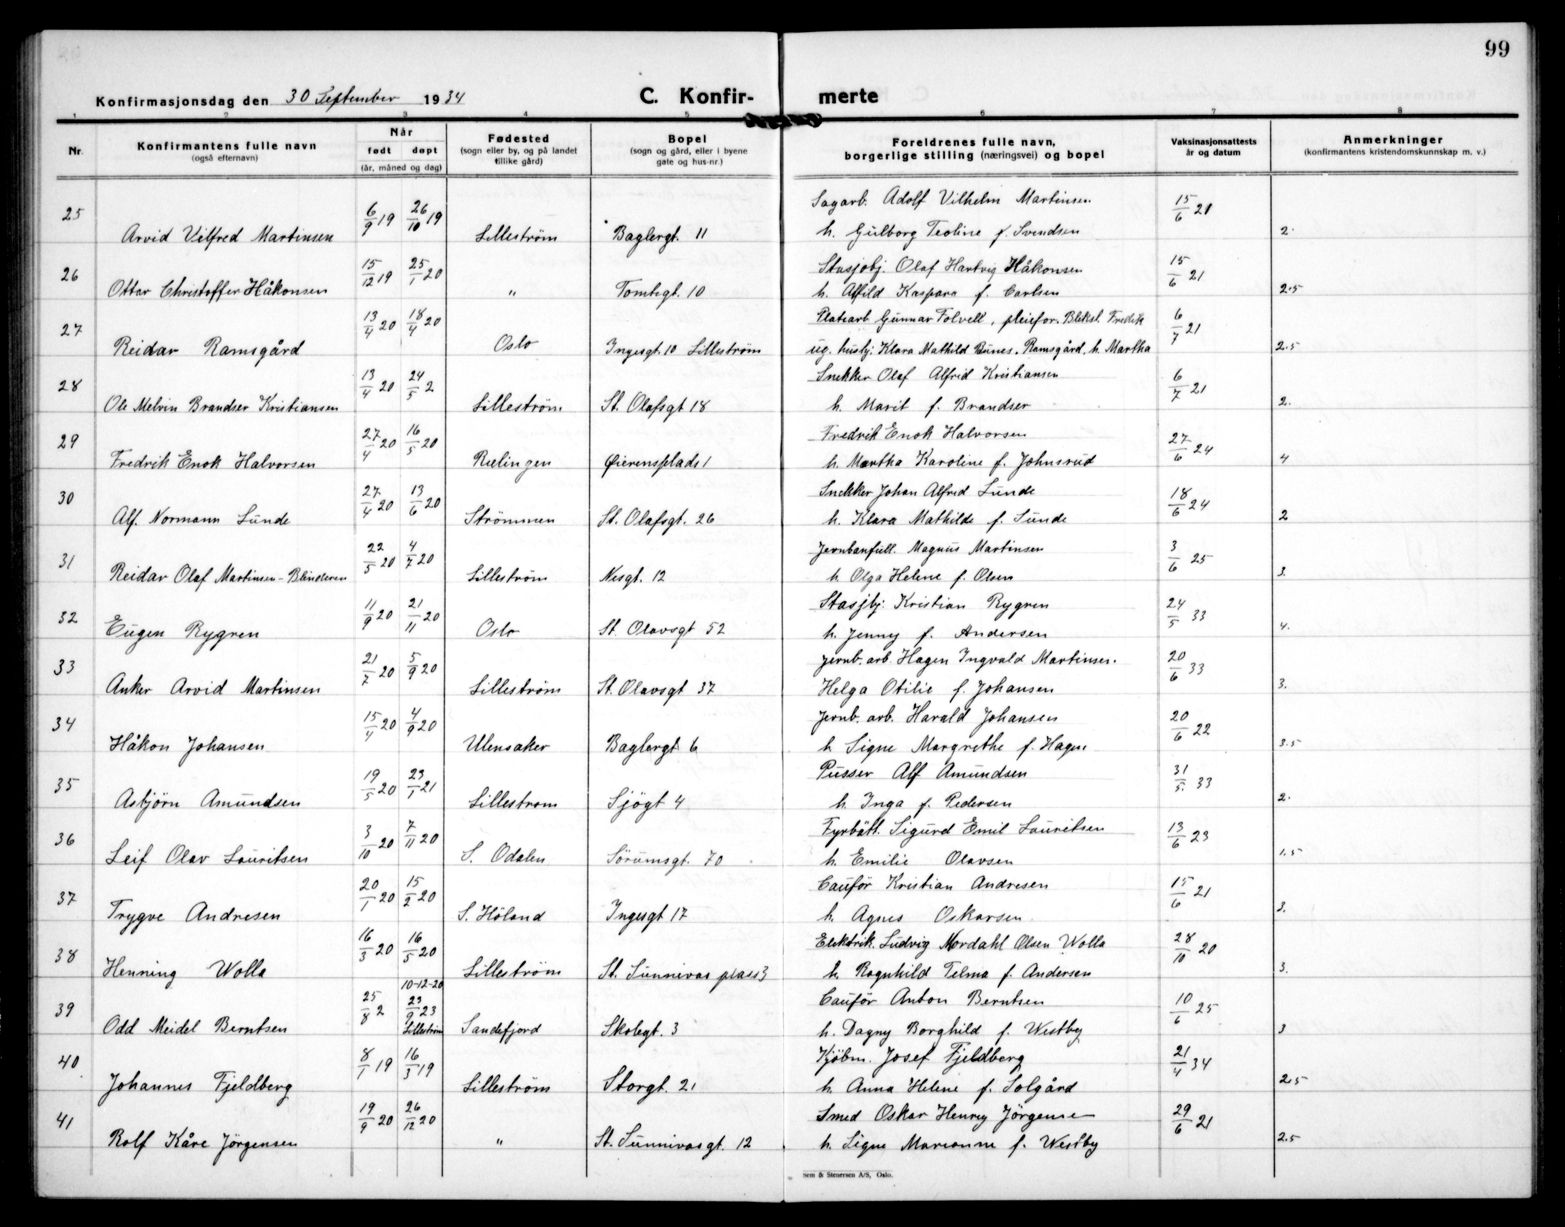 99
Konfirmasjonsdag den 30 September 1934 C. Konfir- merte
1 2 3 4 5 6 7 8
Nr. Konfirmantens fulle navn (også efternavn) Når født døpt (år, måned og dag) Fødested (sogn eller by, og på landet tillike gård) Bopel (sogn og gård, eller i byene gate og hus-nr.) Foreldrenes fulle navn, borgerlige stilling (næringsvei) og bopel Vaksinasjonsattests år og datum Anmerkninger (konfirmantens kristendomskunnskap m. v.)
25 6/9 19 26/10 19 Sagarb. Adolf Vilhelm Martinsen 15/6 20
Arvid Vilfred Martinsen Lilleström Baglergt. 11 h. Gulborg Teoline f. Svendsen 2.
26 15/12 19 25/1 20 Stasjobj. Olaf Hartvig Håkonsen 15/6 21
Ottar Christoffer Håkonsen " Tomtegt. 10 h. Alfild Kaspara f. Carlsen 2.5
27 13/4 20 18/4 20 Platearb Gunnar Tolvell, pleiefor. Bleksl. Fredrik 6/7 21
Reidar Ramsgård Oslo Ingesgt. 10 Lilleström ug. husbj. Klara Mathild Bunes. Ramsgård, h. Martha 2.5
28 13/4 20 24/5 2 Snekker Olaf Alfrid Kristiansen 6/7 21
Ole Melvin Brandser Kristiansen Lilleström St. Olafsgt 18 h. Marit f. Brandser 2.
29 27/4 20 16/5 20 Fredrik Enok Halvorsen 27/6 24
Fredrik Enok Halvorsen Rælingen Øierensplads 1 h. Martha Karoline f. Johnsrud 4
30 27/4 20 13/6 20 Snekker Johan Alfred Lunde 18/6 24
Alf. Normann Lunde Strömmen St. Olafsgt. 26 h. Klara Mathilde f. Lunde 2
31 22/5 20 4/7 20 Jernbanfull. Magnus Martinsen 3/6 25
Reidar Olaf Martinsen-Blinderen Lilleström Nesgt. 12 h. Olga Helene f. Olsen 3.
32 11/9 20 21/11 20 Stasjbj. Kristian Rygren 24/5 33
Eugen Rygren Oslo St. Olavsgt 52 h. Jenny f. Andersen 4.
33 21/7 20 5/9 20 Jernb. arb. Hagen Ingvald Martinsen. 20/6 33
Anker Arvid Martinsen Lilleström St. Olavsgt 37 Helga Otilie f. Johansen 3.
34 15/4 20 4/9 20 Jernb. arb. Harald Johansen 20/6 22
Håkon Johansen Ulensaker Baglergt 6 h Signe Margrethe f. Hagen 3.5
35 19/5 20 23/1 21 Pusser Alf Amundsen 31/5 33
Asbjörn Amundsen Lillestrom Sjögt 4 h. Inga f. Pedersen 2.
36 3/10 20 7/11 20 Fyrböt. Sigurd Emil Lauritsen 13/6 23
Leif Olav Lauritsen S. Odalen Sörumsgt. 70 h. Emilie Olavsen 1.5
37 20/1 20 15/2 20 Cauför Kristian Andresen 15/6 21
Trygve Andresen S. Höland Ingesgt 17 h. Agnes Oskarsen 3.
38 16/3 20 16/5 20 Elektrik. Ludvig Nordahl Olsen Wolla 28/10 20
Henning Wolla Lilleström St. Sunnivas plass 3 h. Ragnhild Telma f. Andersen 3.
39 25/8 2 10-12-20 23/9 23 Lilleström Cauför Anton Berntsen 10/6 25
Odd Meidel Berntsen Sandefjord Skolegt. 3 h. Dagny Borghild f. Westby 3
40 8/1 19 16/3 19 Kjöbm. Josef Fjeldberg 21/4 34
Johannes Fjeldberg Lilleström Storgt. 21 h. Anna Helene f. Solgård 2.5
41 19/9 20 26/12 20 Smed Oskar Henry Jörgense 29/6 21
Rolf Kåre Jörgensen " St. Sunnivasgt. 12 h. Signe Marianne f. Westby 2.5
Sem & Stenersen A/S, Oslo.